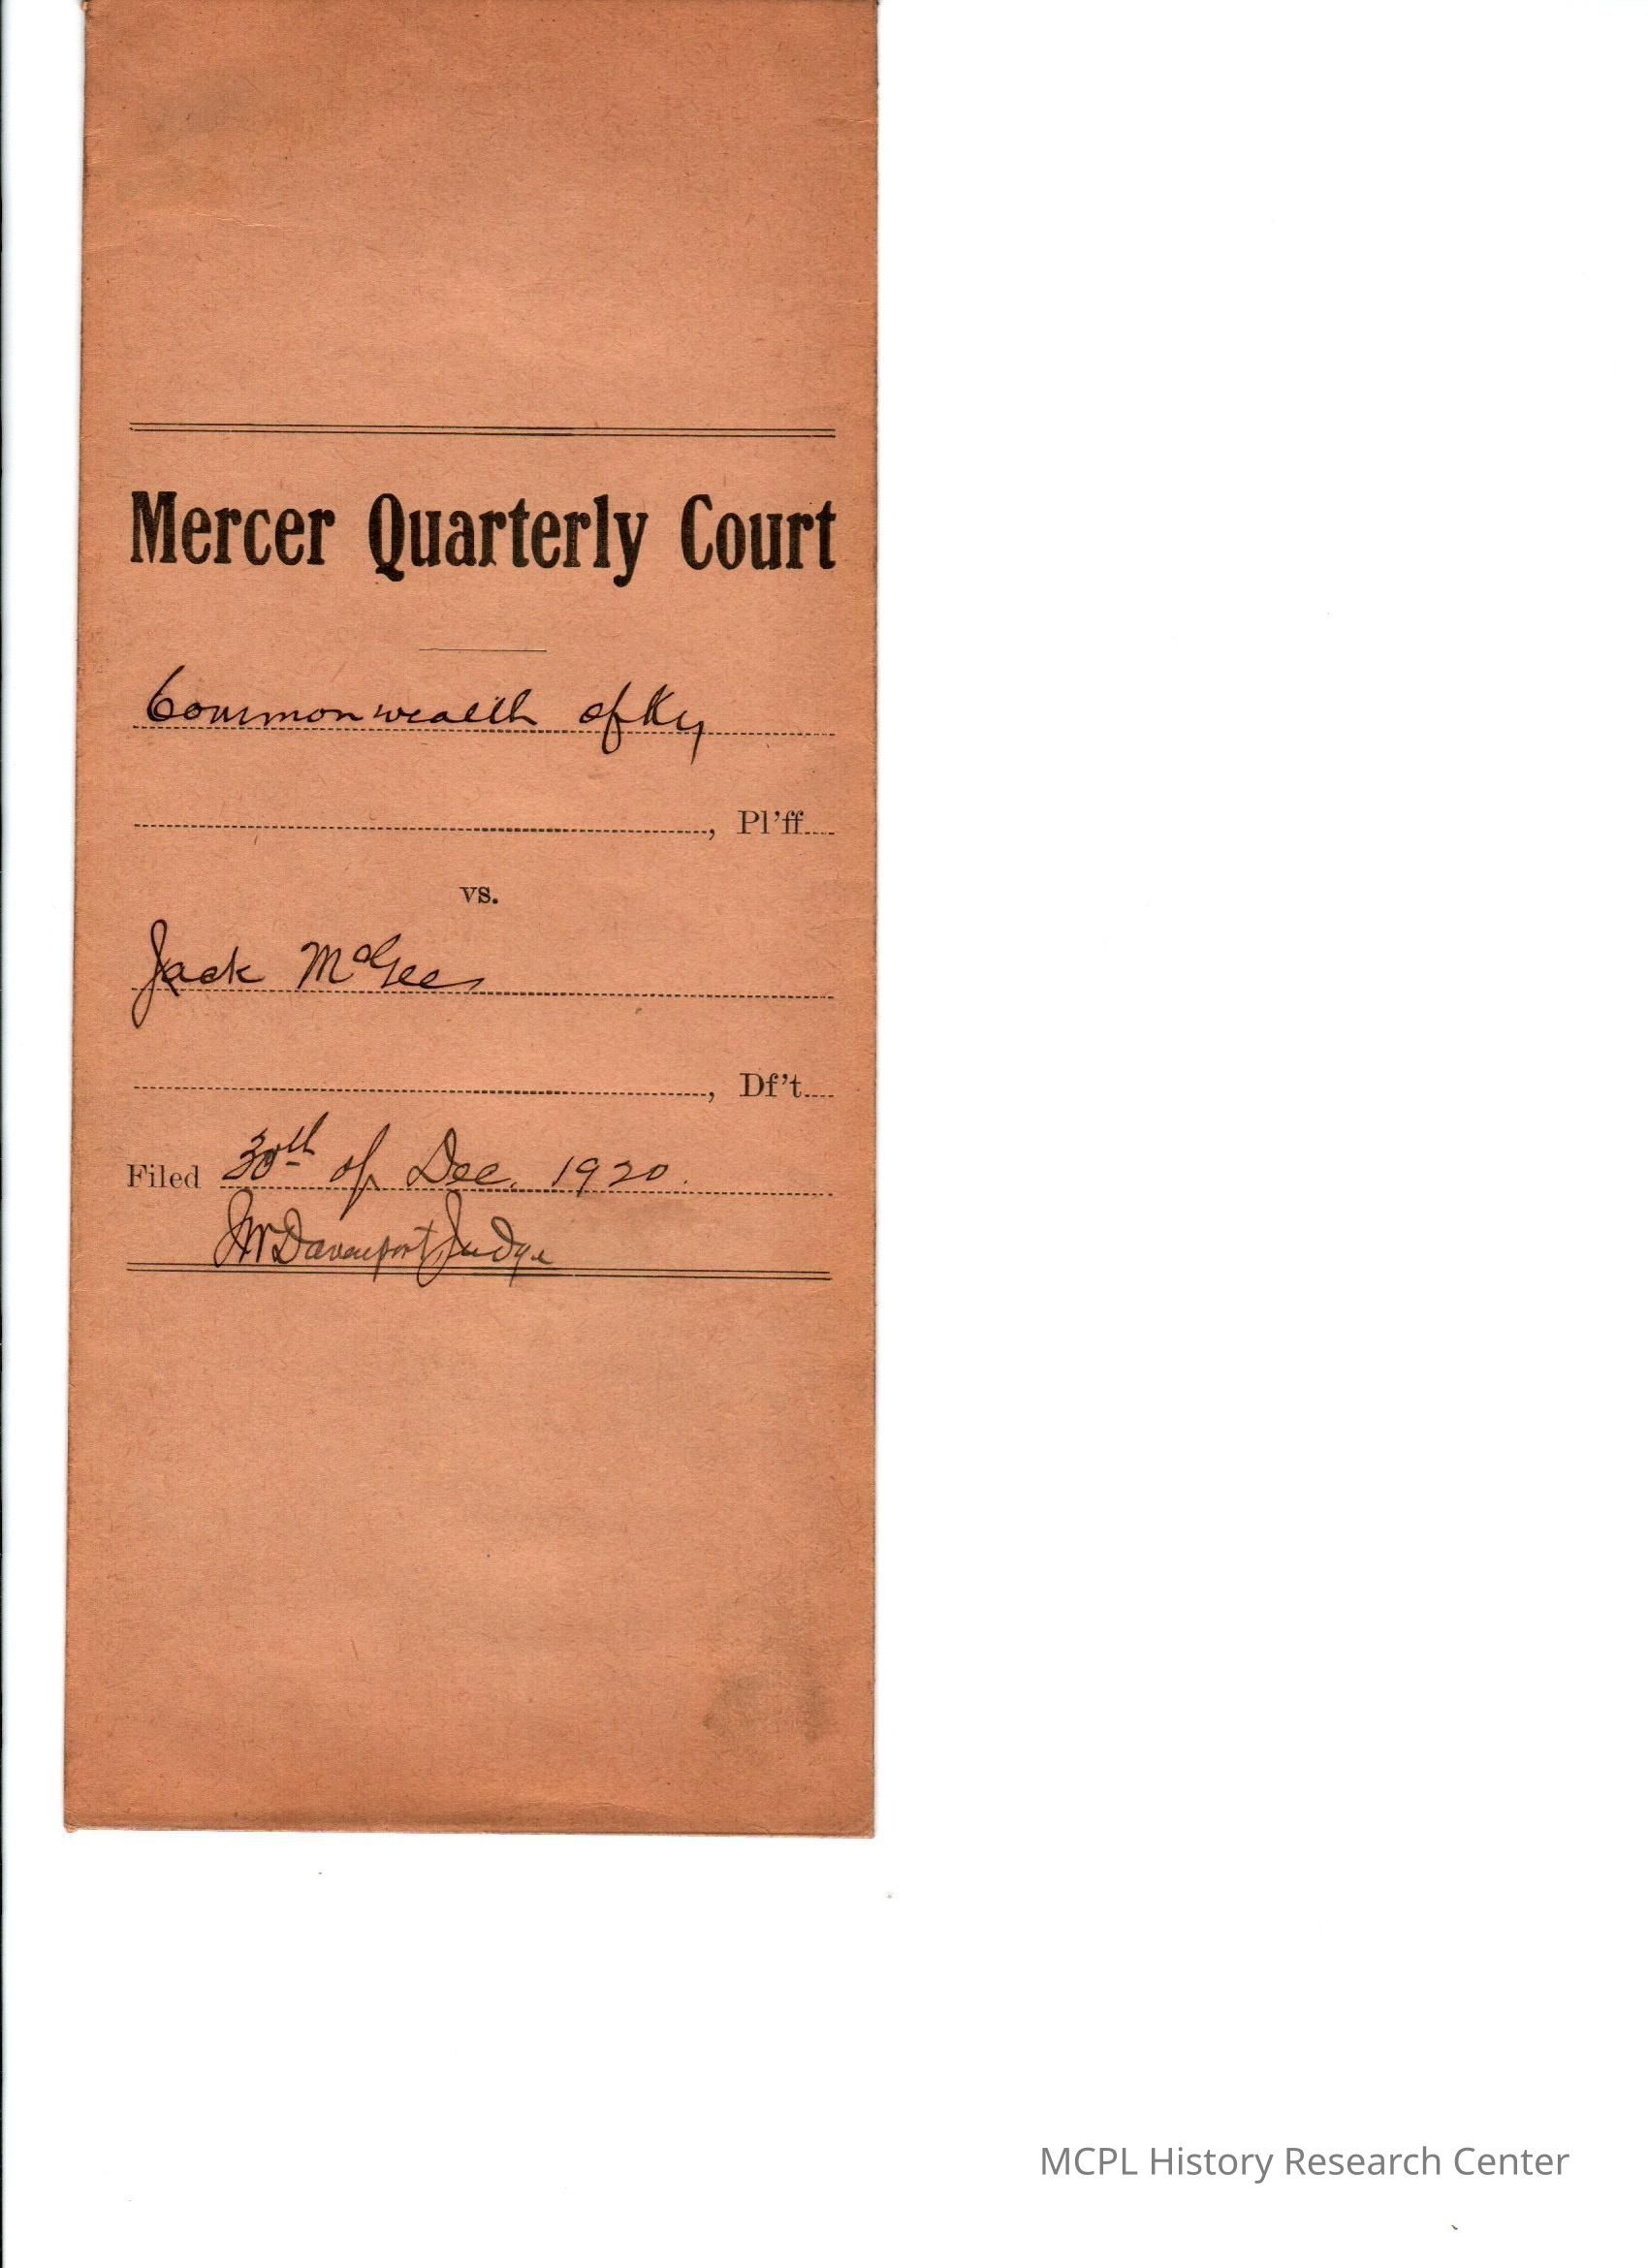 Mercer Quarterly Court
Commonwealth of Ky
, Pl'ff
vs.
Jack McGee
, Df't
Filed 30th of Dec. 1920.
Davenport, Judge
MCPL History Research Center